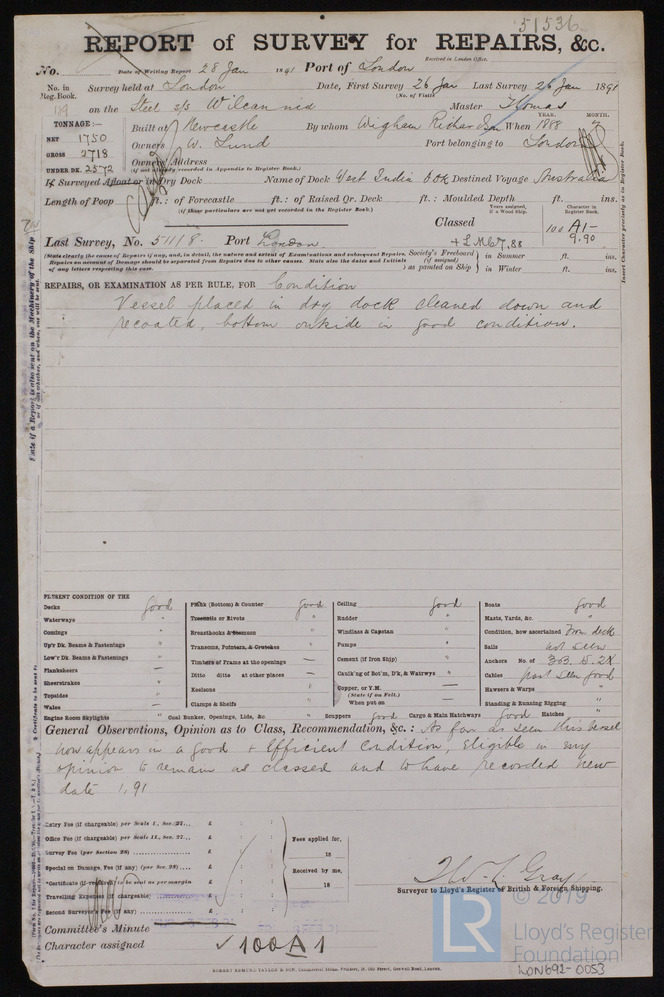 51536
REPORT of SURVEY for REPAIRS, &c.
Received in London Office.
No. Date of Writing Report 28 Jan 1891 Port of London
No. in Reg. Book. Survey held at London Date, First Survey 26 Jan Last Survey 26 Jan 1891
(No. of Visits
on the Steel s/s Wilcannia Master Thomas
TONNAGE:— YEAR. MONTH.
NET 1750 Built at Newcastle By whom Wigham Richardson When 1888
GROSS 2718 Owners W. Lund Port belonging to London
UNDER DK. 2572 Owners' Address
(if not already recorded in Appendix to Register Book.)
If Surveyed Afloat or in Dry Dock Name of Dock West India Dock Destined Voyage Australia
Length of Poop ft.: of Forecastle ft.: of Raised Qr. Deck ft.: Moulded Depth ft. ins.
(if those particulars are not yet recorded in the Register Book.)
Years assigned, if a Wood Ship. Character in Register Book.
Classed 100 A1-
9.90
Last Survey, No. 51118. Port London + LMC 7,88
(State clearly the cause of Repairs if any, and, in detail, the nature and extent of Examinations and subsequent Repairs. Society's Freeboard in Summer ft. ins.
Repairs on account of Damage should be separated from Repairs due to other causes. State also the dates and Initials (if assigned)
of any letters respecting this case. as painted on Ship in Winter ft. ins.
REPAIRS, OR EXAMINATION AS PER RULE, FOR Condition
Vessel placed in dry dock cleaned down and
recoated, bottom outside in good condition.
PRESENT CONDITION OF THE
Decks good Plank (Bottom) & Counter good Ceiling good Boats good
Waterways " Treenails or Rivets " Rudder " Masts, Yards, &c. "
Comings " Breasthooks & Stemson " Windlass & Capstan " Condition, how ascertained From deck
Up'r Dk. Beams & Fastenings " Transoms, Pointers, & Crutches " Pumps " Sails not seen
Low'r Dk. Beams & Fastenings " Timbers of Frame at the openings — Cement (if Iron Ship) " Anchors No. of 3B.3. 1S. 2K
Planksheers " Ditto ditto at other places — Caulk'ng of Bot'm, D'k, & Waterwys " Cables part seen good
Sheerstrakes " Keelsons " Copper, or Y.M. Hawsers & Warps "
Topsides " Clamps & Shelfs " (State if on Felt.) When put on Standing & Running Rigging "
Wales —
Engine Room Skylights " Coal Bunker, Openings, Lids, &c. " Scuppers good Cargo & Main Hatchways good Hatches "
General Observations, Opinion as to Class, Recommendation, &c.: As far as seen this vessel
now appears in a good & Efficient condition, eligible in my
opinion to remain as classed and to have recorded new
date 1,91
Entry Fee (if chargeable) per Scale I., Sec. 27... £ : :
Office Fee (if chargeable) per Scale II., Sec. 27... £ : :
Survey Fee (per Section 28) £ : :
Special on Damage, Fee (if any) (per Sec. 28) £ : :
*Certificate (if required) to be sent as per margin
Travelling Expenses (if chargeable) £ : :
Second Surveyor's Fee (if any) £ : :
Fees applied for,
18
Received by me,
18
Thos. L. Gray
Surveyor to Lloyd's Register of British & Foreign Shipping.
Committee's Minute
Character assigned ✓ 100 A 1
© 2019
LR
Lloyd's Register
Foundation
LON692-0053